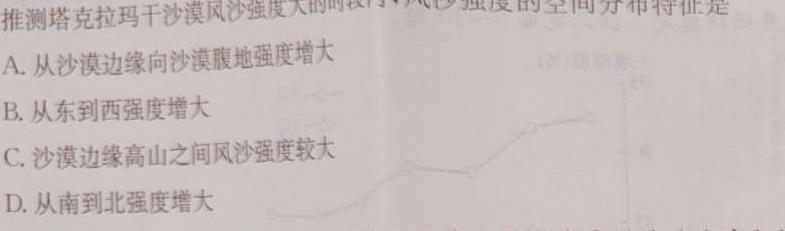 推测塔克拉玛干沙漠风沙强度大的时段内,风沙强度的空间分布特征是
A. 从沙漠边缘向沙漠腹地强度增大
B. 从东到西强度增大
C. 沙漠边缘高山之间风沙强度较大
D. 从南到北强度增大